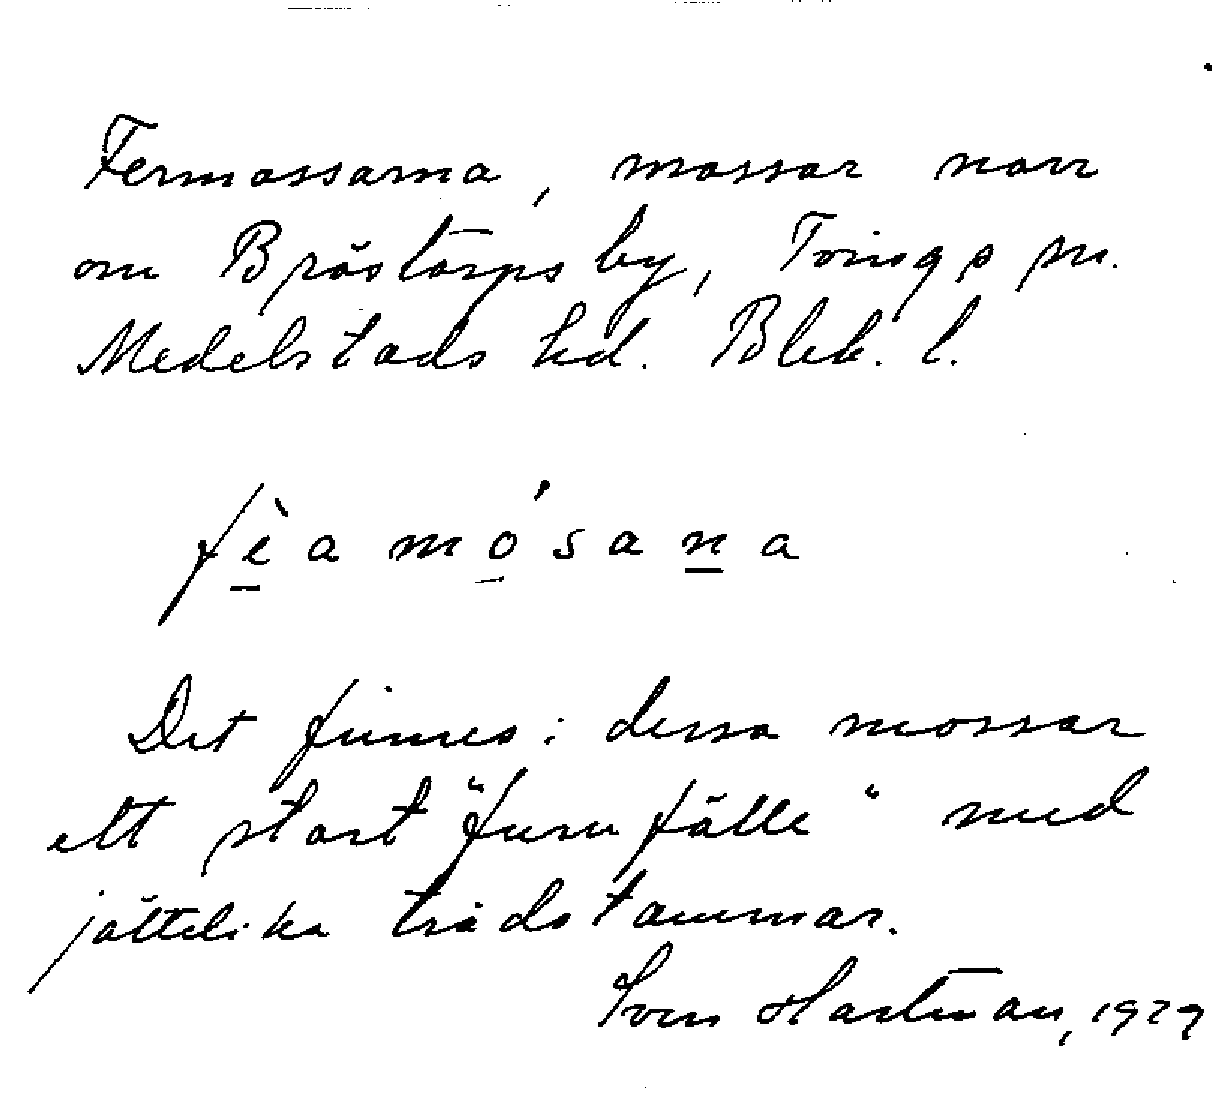 Fermossarna, mossar norr
om Bröstorps by, Tvings sn.
Medelstads hd. Blek. l.
fèa mósana
Det finnes i dessa mossar
ett stort "furufälle" med
jättelika trädstammar.
Sven Hartman, 1929